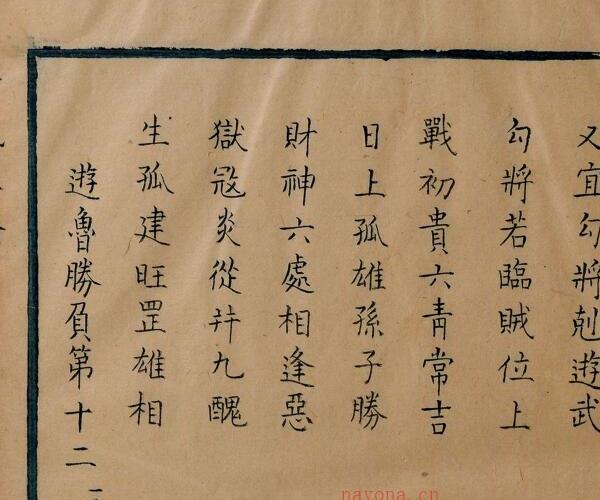 又宜勾將剋遊武
勾將若臨賊位上
戰初貴六青常吉
日上孤雄孫子勝
財神六處相逢惡
獄寇炎從井九醜
生孤建旺罡雄相
遊魯勝負第十二
nayona.cn